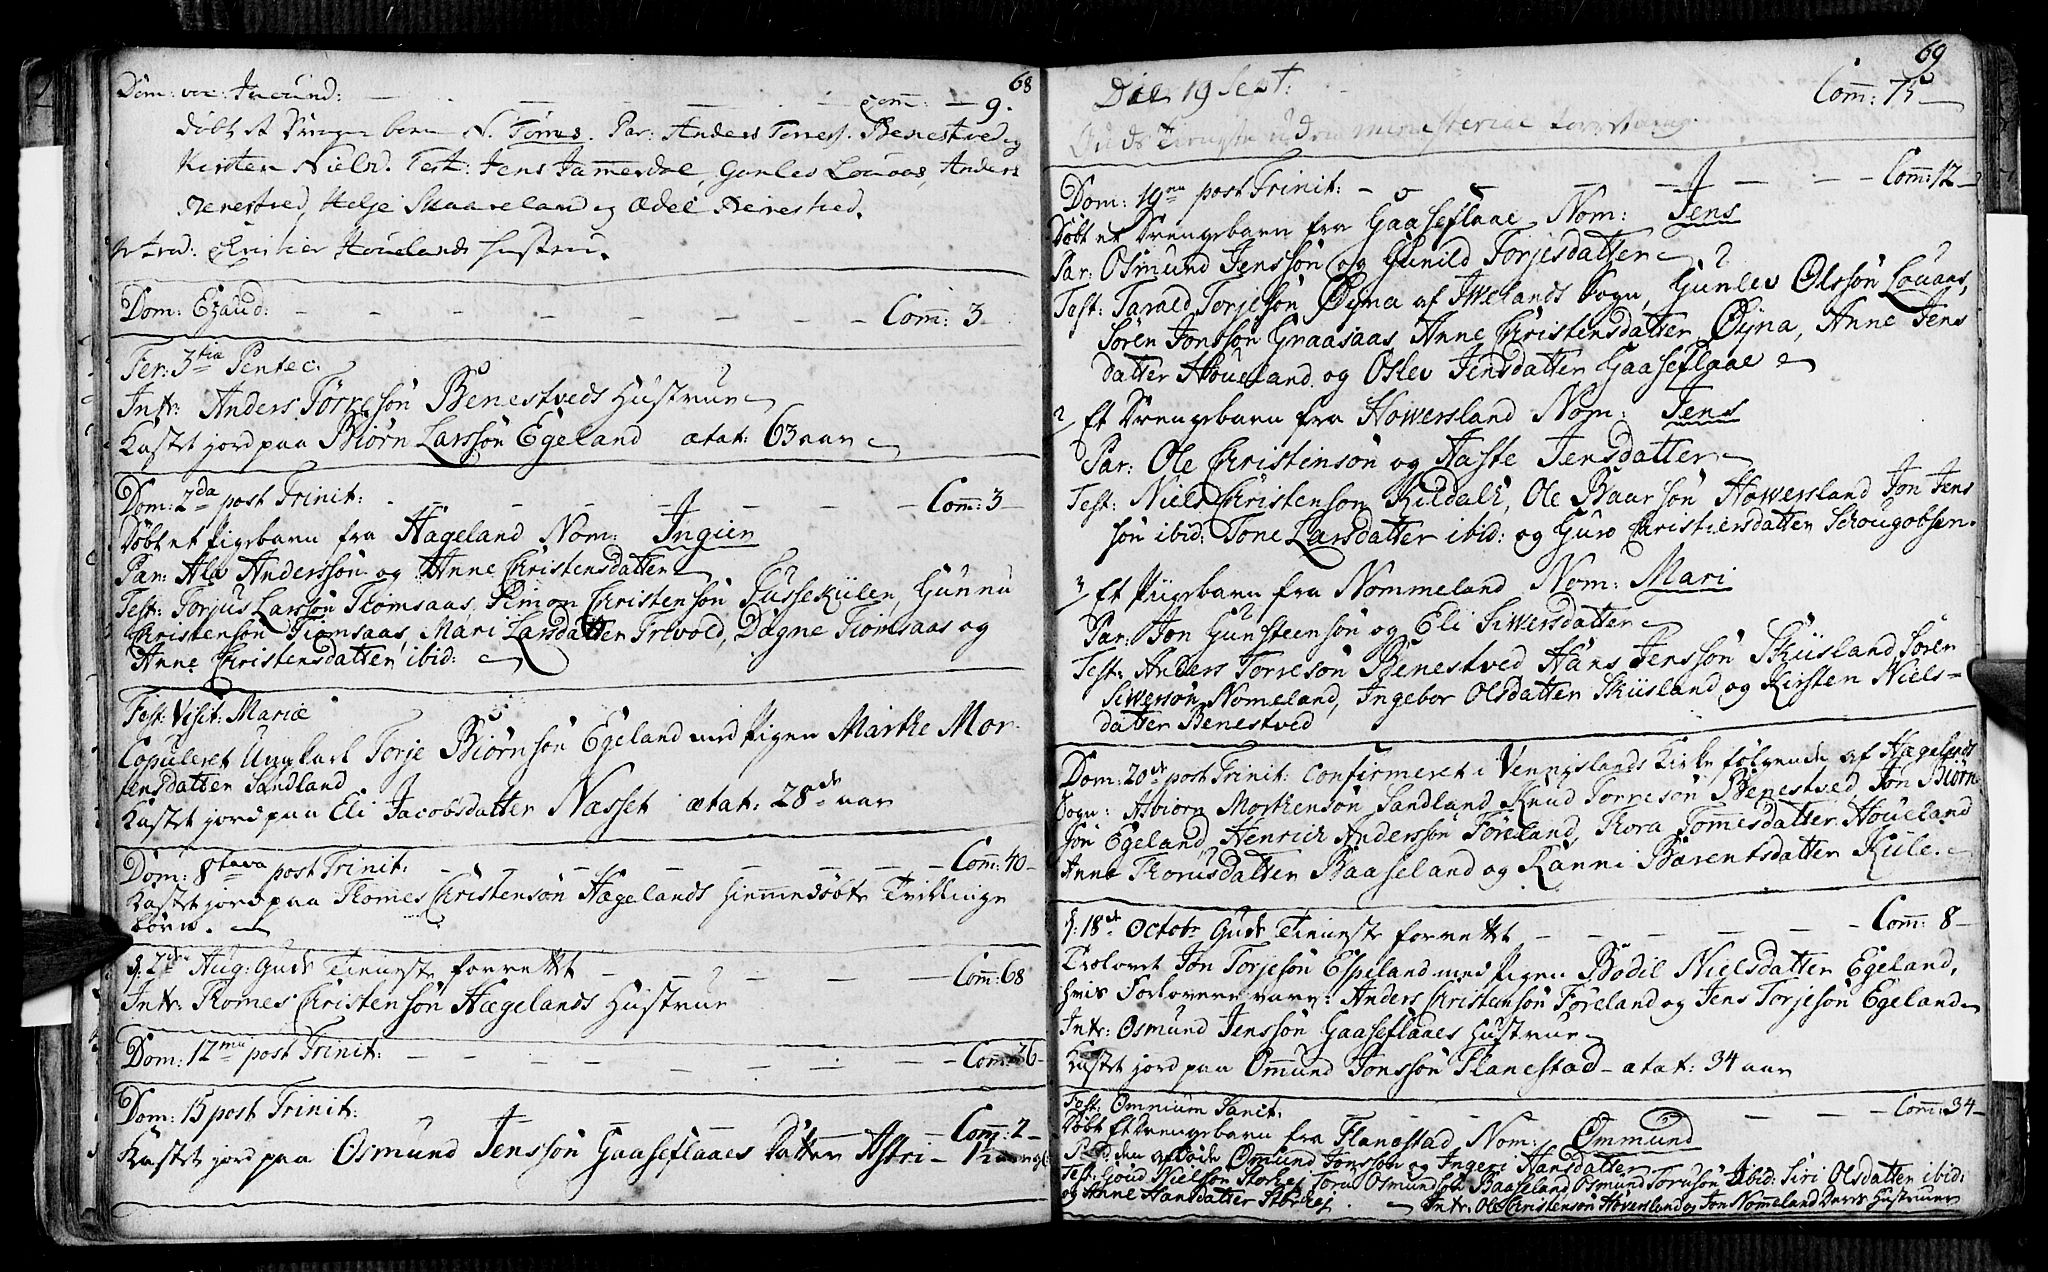 68
Dom: voc: Jucund: — — — — — Com: — 9.
døbt et Drenge barn N. Tørres. Par: Anders Torress. Benestved og
Kirsten Nielsd. Test: Jens Jammersdal, Gunlev Louaas, Anders
Benestved, Helje Skaareland og Ædel Benestved.
Introd: Christier Houelands Hustru.
Dom: Exaud: — — — — — — — Com: 3
Fer: 3tia Pentec.
Intr: Anders Tørresøn Benestveds Hustrue
Kastet jord paa Biørn Larssøn Egeland ætat: 63 aar
Dom: 2da post Trinit: — — — — — Com: 3
Døbt et Pigebarn fra Hageland Nom: Ingier
Par: Ala Anderssøn og Anne Christensdatter
Test: Torjus Larssøn Tiomsaas, Simon Christensøn Fussekulen, Gunnu
Christensøn Tiomsaas, Mari Larsdatter Trivold, Dagne Tiomsaas og
Anne Christensdatter ibid:
Fest: Visit: Mariæ
Copuleret Ungkarl Torje Biørnsøn Egeland med Pigen Marthe Mor-
tensdatter Sandland
Kastet jord paa Eli Jacobsdatter Næsset ætat: 28de aar
Dom: 8tava post Trinit. — — — — — Com: 40
Kastet jord paa Thomes Christensøn Hægelands hiemmedøbte Tvillinge
børn.
d: 2den Aug: Guds Tieneste forrettet — — — — Com: 68
Intr: Thomes Christensøn Hægelands Hustrue
Dom: 12ma post Trinit: — — — — — — Com: 36
Dom: 15 post Trinit:
Com: 2
Kastet jord paa Osmund Jenssøn Gaaseflaaes Datter Astri
69
Die 19 Sept: Com: 75
Guds Tieneste uden ministerial forretning.
Dom: 19na post Trinit: — — — — — — Com: 12
Døbt et Drengebarn fra Gaaseflaae Nom: Jens
Par: Osmund Jenssøn og Gunild Torjesdatter
Test: Tarald Torjesøn Øyna af Iwelands Sogn, Gunlev Olssøn Louaas,
Søren Jonssøn Graasaas, Anne Christensdatter Øyna, Anne Jens
datter Houeland og Oslev Jensdatter Gaaseflaae
2 Et Drengebarn fra Howersland Nom: Jens
Par: Ole Christensøn og Aaste Jensdatter
Test: Niels Christenson Kildahl, Ole Baarsøn Howersland Jon Jens
søn ibid: Tone Larsdatter ibid: og Guro Christiersdatter
3 Et Piigebarn fra Nommeland Nom: Mari
Par: Jon Gunsteensøn og Eli Siwersdatter
Test: Anders Torresøn Benestved Hans Jenssøn Skiisland, Søren
Siwersøn Nomeland, Ingebor Olsdatter Skiisland og Kirsten Niels-
datter Benestved
Dom: 20de post Trinit: Confirmeret i Vennislands Kirke følgende af Hægelands
Sogn: Asbiørn Morthensøn Sandland, Knud Torresøn Benestved, Jon Biørn
søn Egeland, Henrich Anderssøn Føreland, Thora Tommesdatter Houeland
Anne Thorusdatter Baaseland og Ranni Barentsdatter Kule.
d: 18de Octobr Guds Tieneste forrettet — — — — — Com: 8
Trolovet Jon Torjesøn Espeland med Pigen Bodil Nielsdatter Egeland,
hvis Forlovere vare: Anders Christensøn Føreland og Jens Torjesøn Egeland
Intr: Osmund Jenssøn Gaaseflaaes Hustrue
Kastet jord paa Ommund Jonssøn Flanestad ætat: 34 aar
Fest: Omnium Sanct: — — — Com: 34
Døbt et Drengebarn fra Flanestad Nom: Ommund
Par: den afdøde Omund Jonssøn og Inger Hansdatter
Test: Nielssøn Toru Osmundsøn Baaseland Osmund Torusøn ibid: Siri Olsdatter ibid:
og Anne Hansdatter — Intr: Ole Christensøn Howersland og Jon Nomeland Deres Hustruer